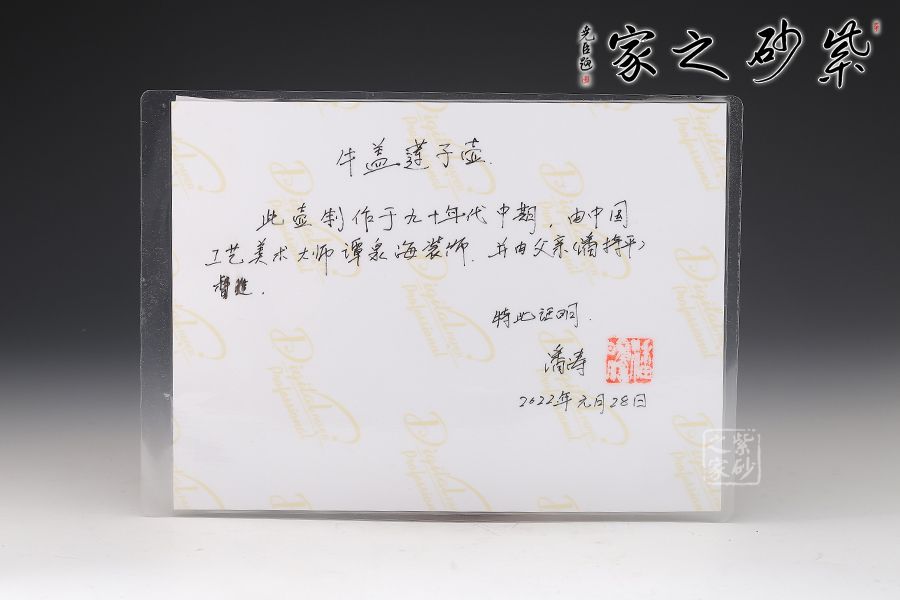 紫砂之家
尧臣题
牛盖莲子壶.
此壶制作于九十年代中期，由中国
工艺美术大师谭泉海装饰.并由父亲(潘持平)
督造.
特此证明.
潘涛
2022年元月28日
紫砂之家
Digital
Professional